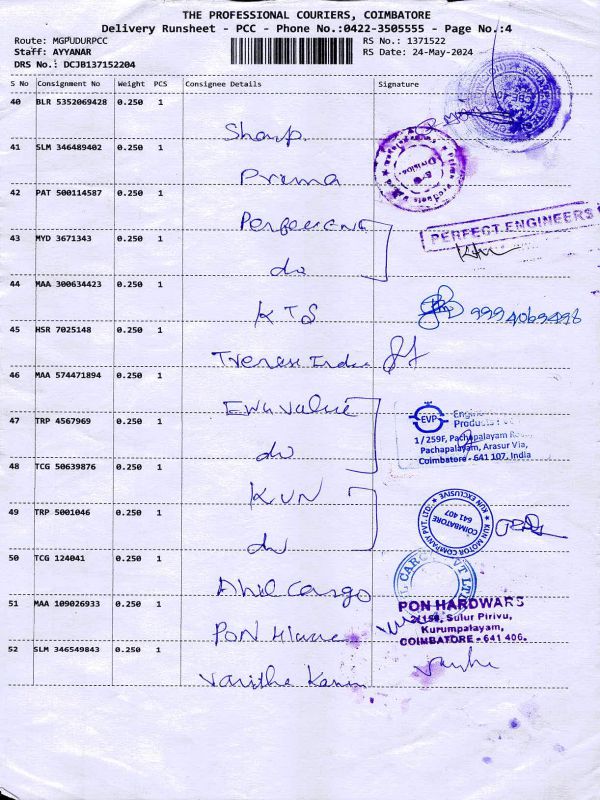 THE PROFESSIONAL COURIERS, COIMBATORE
Delivery Runsheet - PCC - Phone No.:0422-3505555 - Page No.:4
Route: MGPUDURPCC
Staff: AYYANAR
DRS No.: DCJB137152204
RS No.: 1371522
RS Date: 24-May-2024
S No Consignment No Weight PCS Consignee Details Signature
40 BLR 5352069428 0.250 1
Sharp
41 SLM 346489402 0.250 1
Prima
42 PAT 500114587 0.250 1
PERFECT ENGINEERS
43 MYD 3671343 0.250 1
do
44 MAA 300634423 0.250 1
KTS 9994069498
45 HSR 7025148 0.250 1
India
46 MAA 574471894 0.250 1
EVP Engine
Products Pvt
1/259F, Pachapalayam Road
Pachapalayam, Arasur Via,
Coimbatore - 641 107. India
47 TRP 4567969 0.250 1
do
48 TCG 50639876 0.250 1
KUN
KUN MOTOR COMPANY PVT. LTD. ★ KUN EXCLUSIVE ★
COIMBATORE
641 407
49 TRP 5001046 0.250 1
do
50 TCG 124041 0.250 1
Cargo
CARGO PVT LTD
51 MAA 109026933 0.250 1
PON
PON HARDWARS
Sulur Pirivu,
Kurumpalayam,
COIMBATORE - 641 406.
52 SLM 346549843 0.250 1